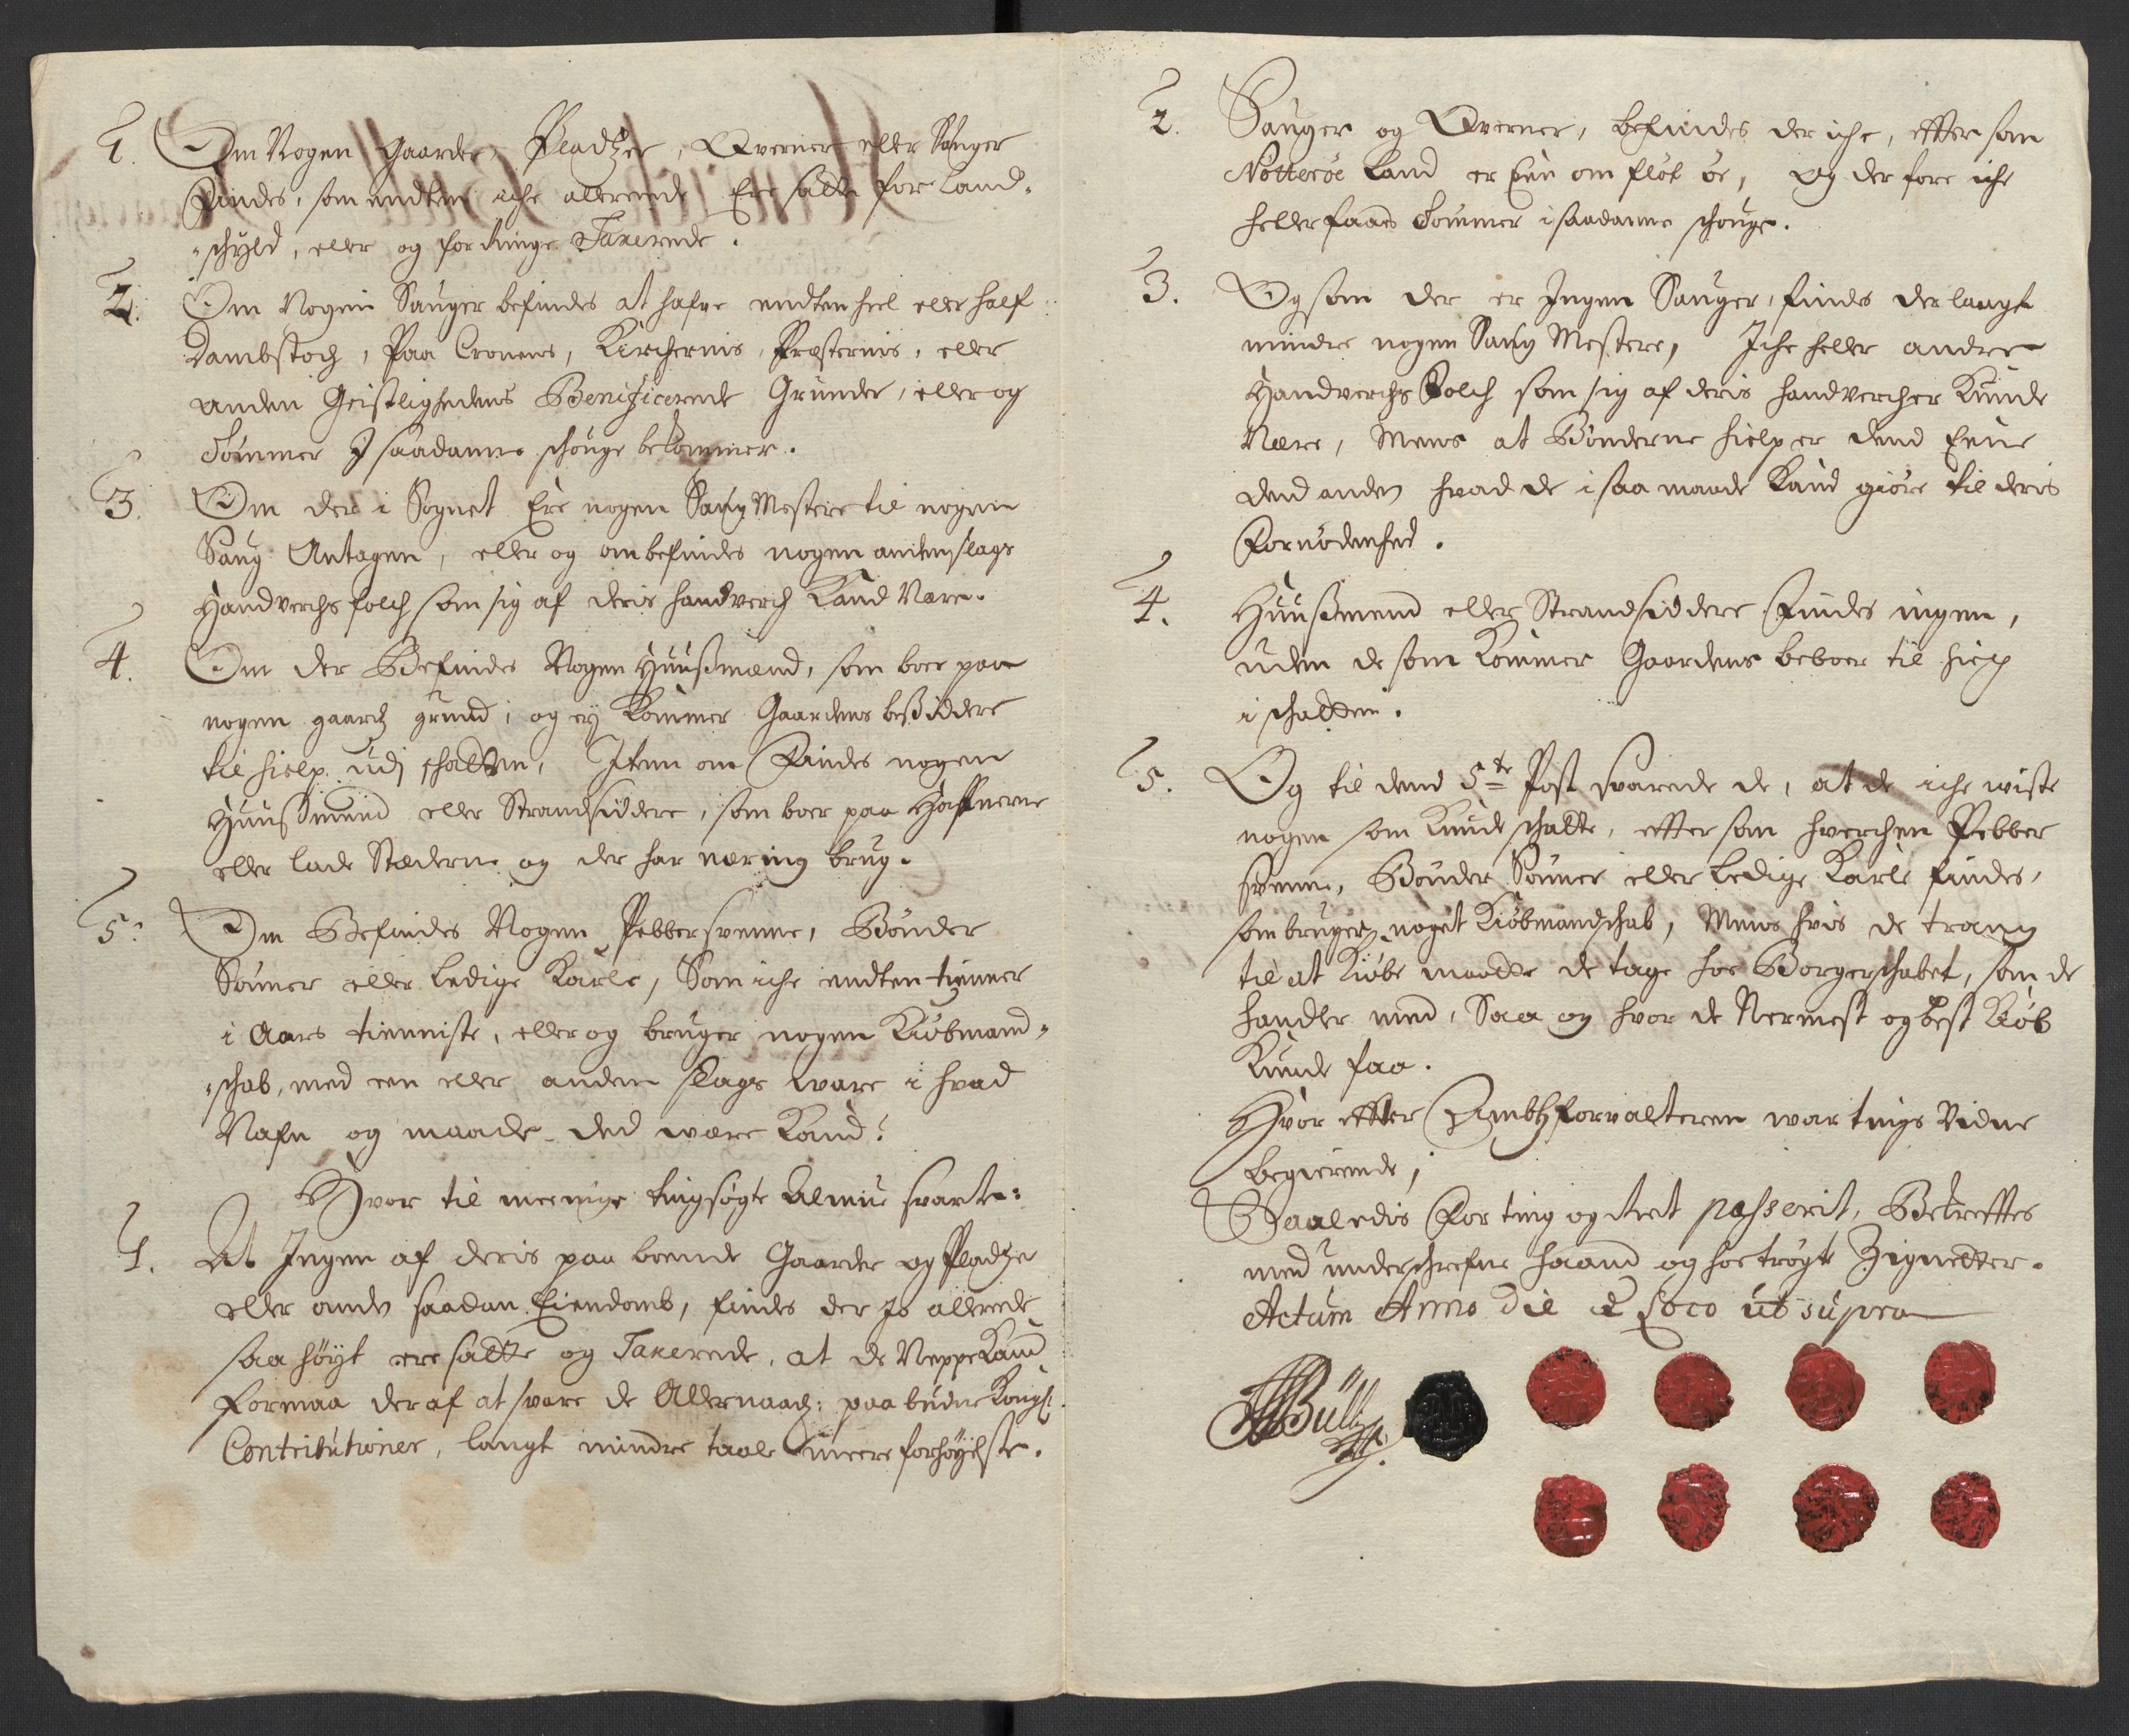 1. Om Nogen Gaarder Pladtzer, Qverner eller Sauger
findes, som endten iche allerende Ere satte for Land-
schyld, eller og for ringe Taxerede.
2. Om Nogen Sauger befindes at hafve endten heel eller half
Dambstoch, Paa Cronens, Kirchernis, Præsternis, eller
anden Geistlighedens Benificerede Grunder, eller og
Tømmer I saadanne schouge bekommer.
3. Om der i Sognet Ere nogen Saug Mestere til nogen
Saug Antagen, eller og om befindes nogen anden slags
Handverchs folch som sig af deris handverch Kand Nære.
4. Om der Befindes Nogen Huusmænd, som boer paa
nogen gaards grund, og ey Kommer Gaardens besiddere
til hielp udj schatten, Item om Findes nogen
Huusmend eller Strandsiddere, som boer paa Hafnerne
eller lade Stæderne og der har næring brug.
5. Om Befindes Nogen Pebbersvenne, Bønder
Sønner eller Ledige Karle, Som iche endten tienner
i Aars tienniste, eller og bruger nogen Kiøbmand-
schab, med een eller anden slags ware i hvad
Nafn og maade ded være Kand?
Hvor til meenige tingsøgte Almue svarte:
1. At Ingen af deris paa boende Gaarder og Pladtze
eller anden saadan Eiendomb, findes der jo allerede
saa høyt ere satte og Taxerede, at de Neppe Kand
formaa der af at svare de Allernaads: paabudne Kongl:
Contributioner, langt mindre taale meere forhøyelse.
2. Sauger og Qverner, befindes der iche, efter som
Nøtterøe Land er Een omfløt øe, og der fore iche
heller faaes Tømmer i saadanne schouge.
3. Og som der er Ingen Sauger, findes der langt
mindre nogen Saug Mestere, Iche heller andre
Handverchs Folch som sig af deris handvercher Kunde
Nære, Mens at Bønderne hielper dend Eene
dend anden hvad de i saa maade Kand giøre til deris
Fornødenhed.
4. Huusmend eller Strandsiddere Findes ingen,
uden de som Kommer Gaardens beboer til hielp
i schatten.
5. Og til dend 5te Post svarede de, at de iche wiste
nogen som Kunde schatte, efter som hverchen Pebber
svenne, Bønder Sønner eller Ledige Karle findes,
som bruger noget Kiøbmandschab, Mens hvis de trang
til at Kiøbe maatte de tage hos Borgerschabet, som de
handler med, Saa og hvor de Nermest og best Kiøb
Kunde faa.
Hvor efter Ambtsforvalteren war tings Vidne
begierende,
Saaledis for ting og Ret passerit, Bekreftes
med underschrefne haand og hostrøgte Zignetter.
Actum Anno Die et Loco ut supra